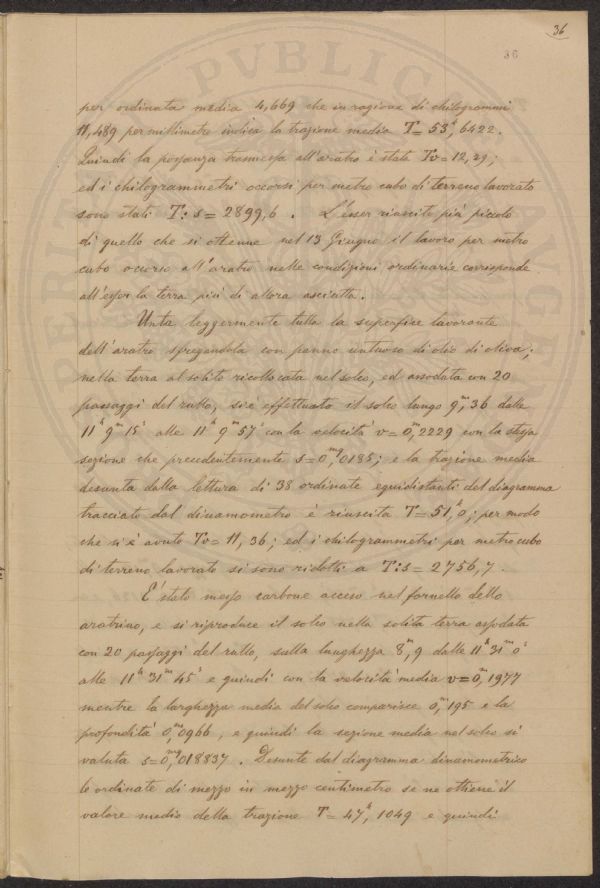 36
36
per ordinata media 4,669 che in ragione di chilogrammi
11,489 per millimetro indica la trazione media T = 53,k6422.
Quindi la possanza trasmessa all'aratro è stata Tv = 12,29;
ed i chilogrammetri occorsi per metro cubo di terreno lavorato
sono stati T:s = 2899,6. L'esser riescito più piccolo
di quello che si ottenne nel 13 Giugno il lavoro per metro
cubo occorso all'aratro nelle condizioni ordinarie corrisponde
all'esser la terra più di allora asciutta.
Unta leggermente tutta la superficie lavorante
dell'aratro spregandola con panno intinto di olio di oliva;
nella terra al solito ricollocata nel solco, ed assodata con 20
passaggi del rullo, si è effettuato il solco lungo 9,m36 dalle
11h 9m 15s alle 11h 9m 57s con la velocità v = 0,m2229 con la stessa
sezione che precedentemente s = 0,mq0185; e la trazione media
desunta dalla lettura di 38 ordinate equidistanti del diagramma
tracciato dal dinamometro è riuscita T = 51,k0; per modo
che si è avuto Tv = 11,36; ed i chilogrammetri per metro cubo
di terreno lavorato si sono ridotti a T:s = 2756,7.
E' stato messo carbone acceso nel fornello dello
aratrino, e si riproduce il solco nella solita terra assodata
con 20 passaggi del rullo, sulla lunghezza 8,m9 dalle 11h 31m 0s
alle 11h 31m 45s e quindi con la velocità media v = 0,m1977
mentre la larghezza media del solco comparisce 0,m195 e la
profondità 0,m0966, e quindi la sezione media nel solco si
valuta s = 0,mq018837. Desunte dal diagramma dinamometrico
le ordinate di mezzo in mezzo centimetro se ne ottiene il
valore medio della trazione T = 47,k1049 e quindi